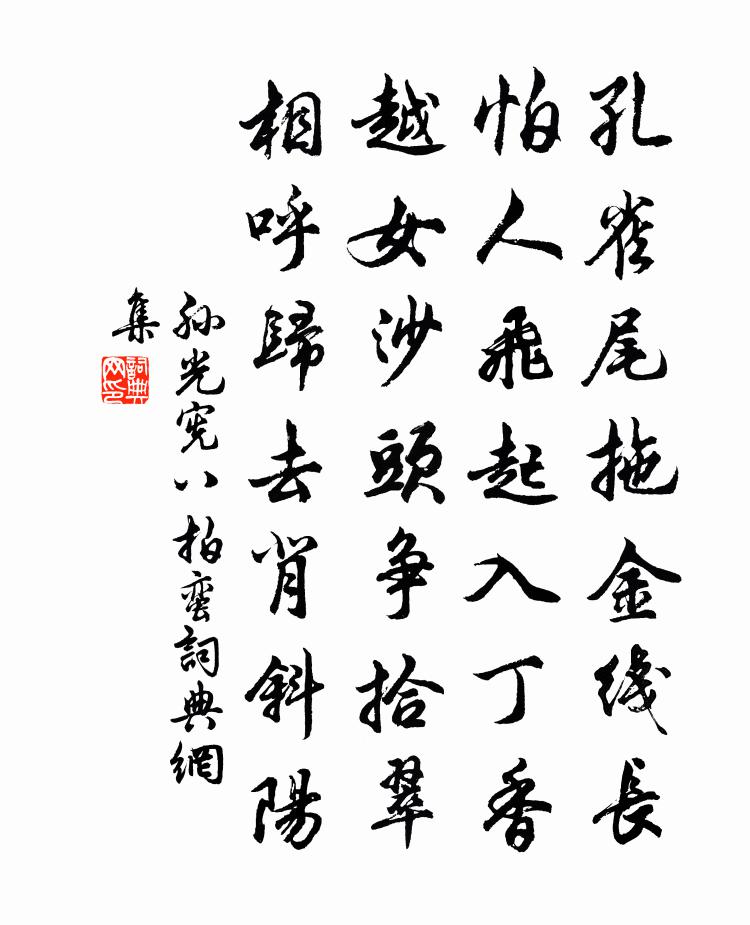 孔雀尾拖金线長
怕人飛起入丁香
越女沙頭争拾翠
相呼歸去背斜陽
孙光宪八拍蛮詞典網
集
詞典
网印